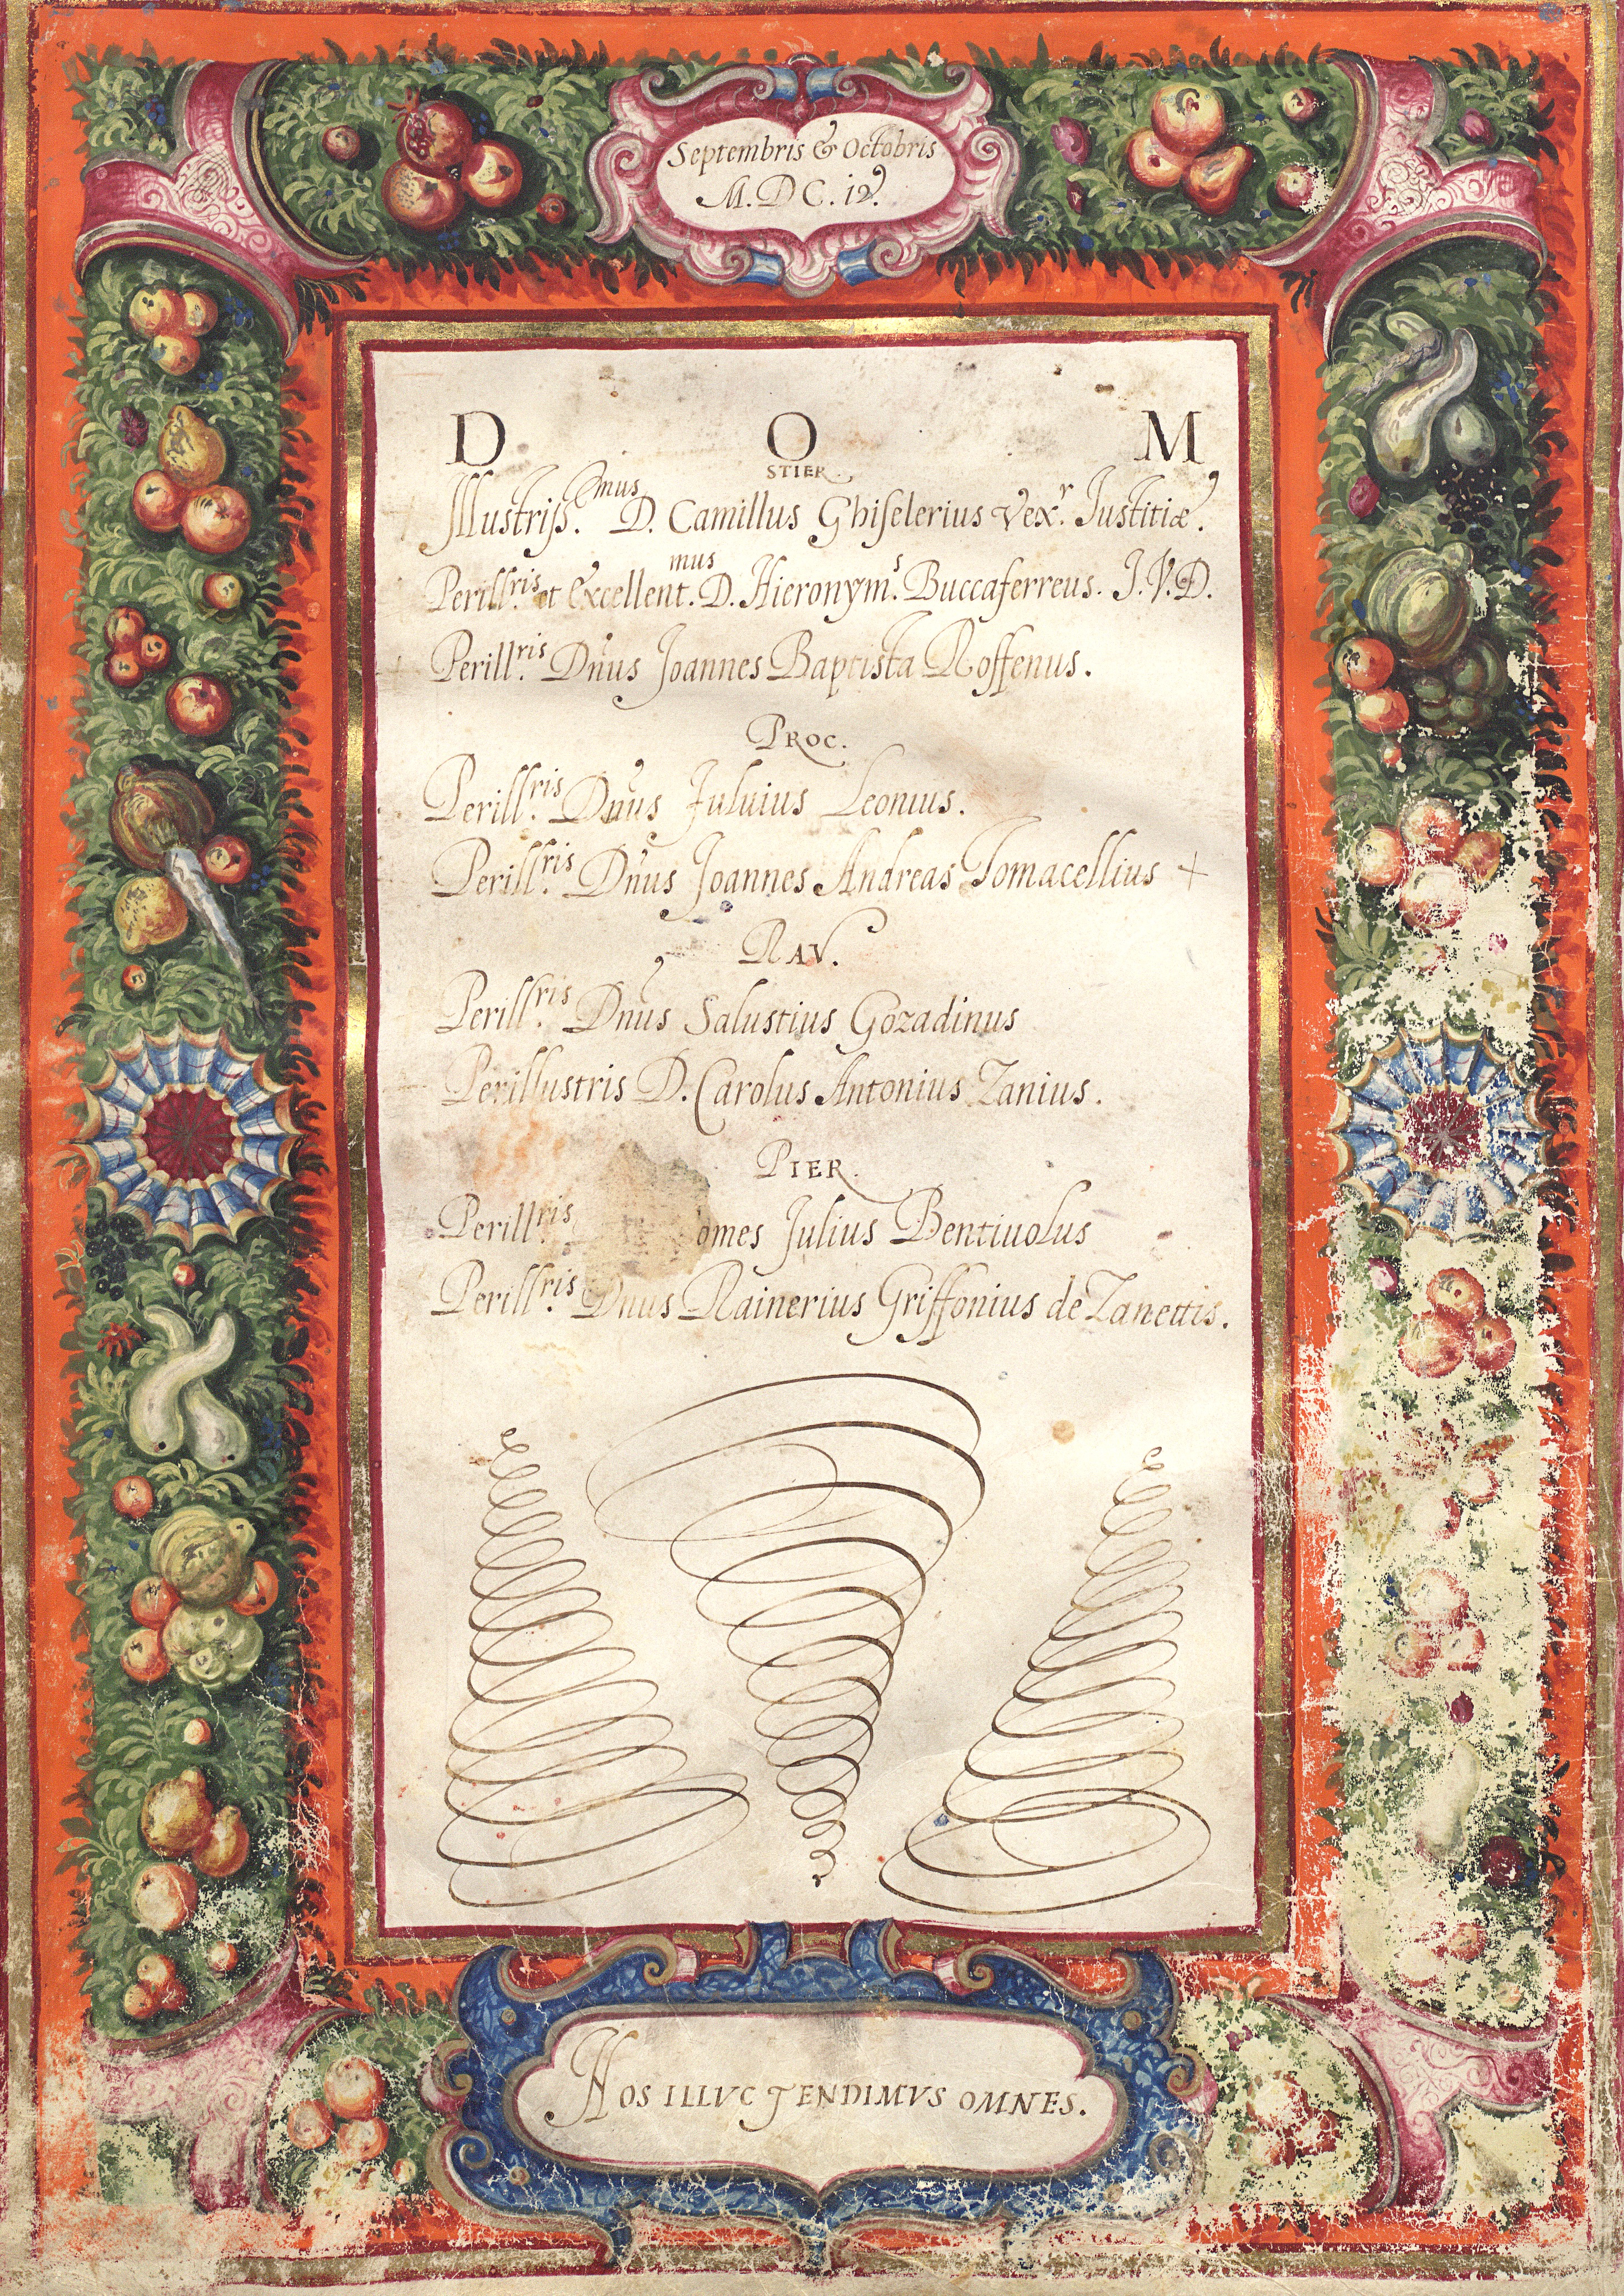 Septembris & Octobris
M. D C. iv.
D O M
STIER.
Illustriss.mus D. Camillus Ghiselerius Vex.r Justitiæ.
Perill.ris et Excellent.mus D. Hieronym.s Buccaferreus. J. V. D.
Perill.ris Dñus Joannes Baptista Roffenus.
PROC.
Perill.ris Dñus Fuluius Leonius.
Perill.ris Dñus Joannes Andreas Tomacellius +
RAV.
Perill.ris Dñus Salustius Gozadinus
Perillustris D. Carolus Antonius Zanius.
PIER.
Perill.ris omes Julius Bentiuolus
Perill.ris Dñus Rainerius Griffonius de Zanettis.
NOS ILLVC TENDIMVS OMNES.